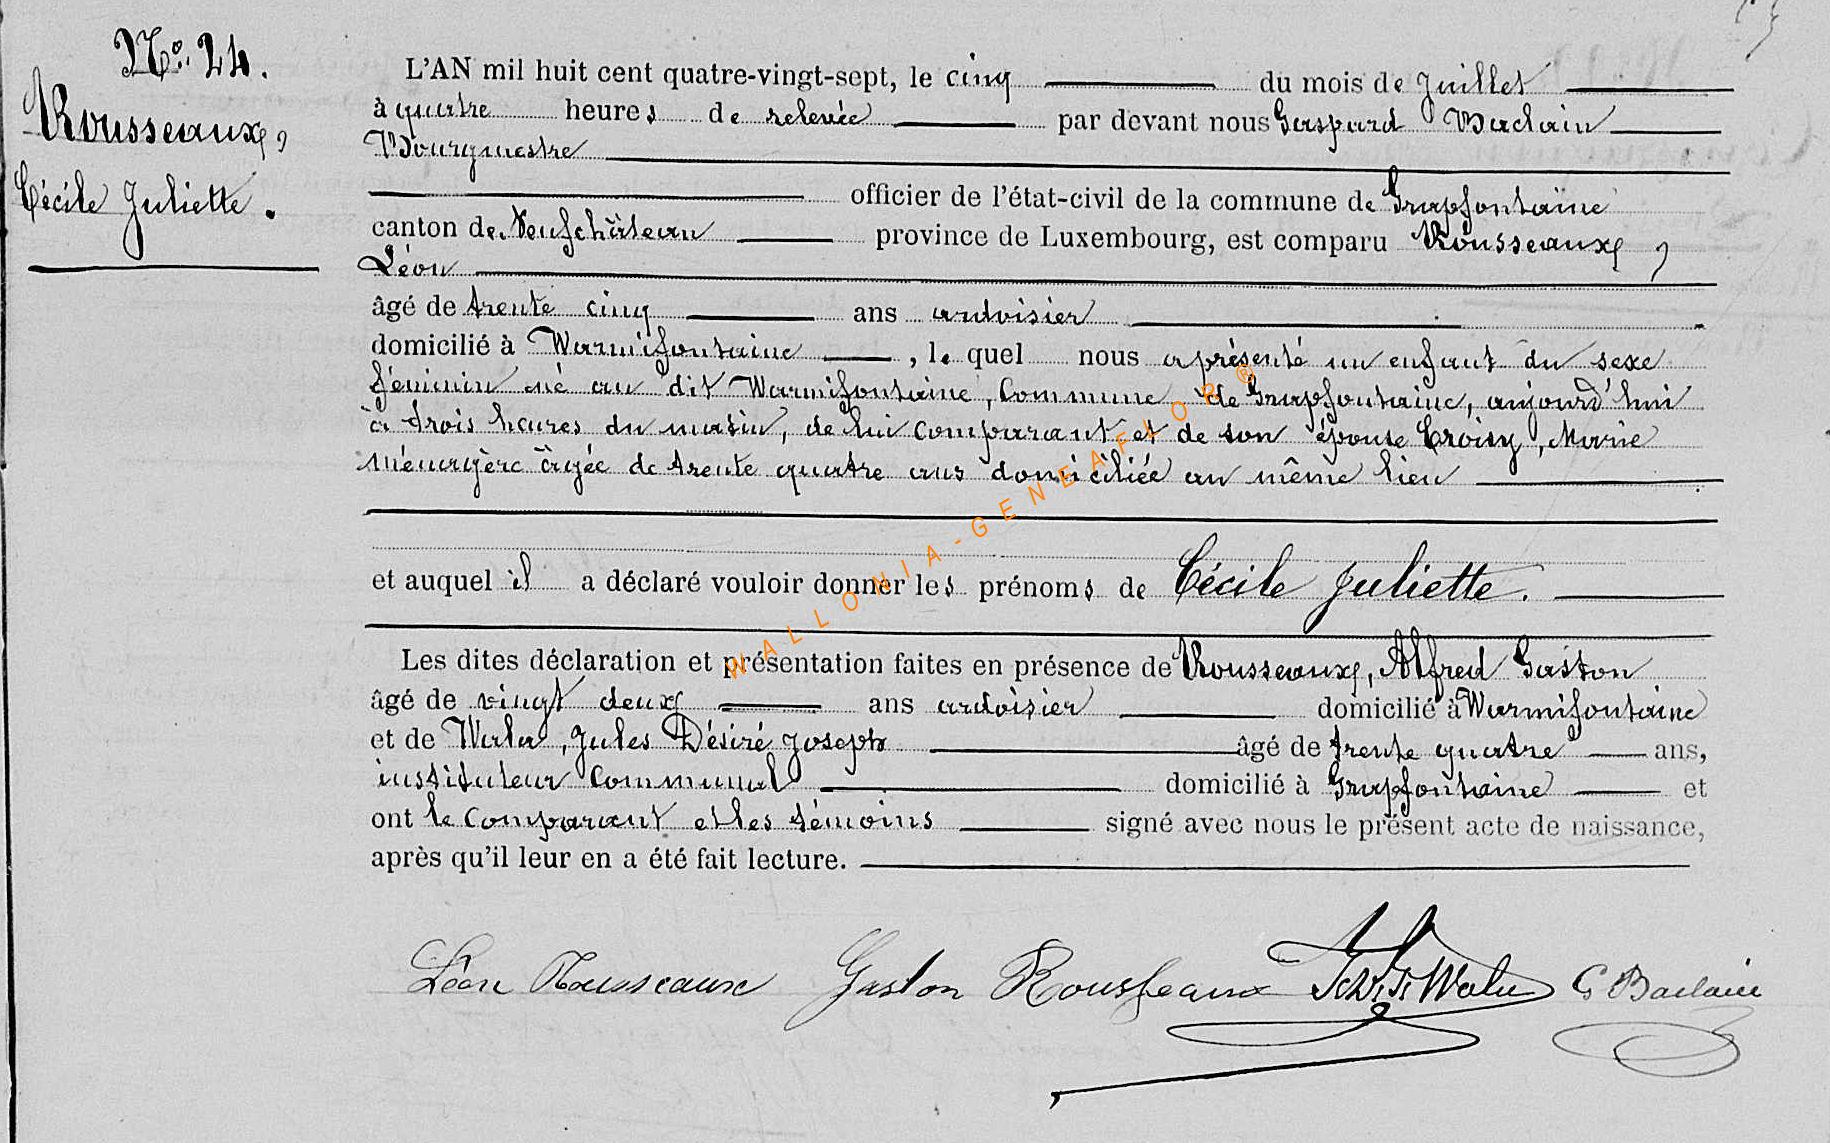 N° 24.
Rousseaux,
Cécile Juliette.
L'AN mil huit cent quatre-vingt-sept, le cinq du mois de Juillet
à quatre heures de relevée par devant nous Gaspard Baclain
Bourgmestre
officier de l'état-civil de la commune de Grapfontaine
canton de Neufchâteau province de Luxembourg, est comparu Rousseaux,
Léon
âgé de trente cinq ans ardoisier
domicilié à Warmifontaine, le quel nous a présenté un enfant du sexe
féminin né au dit Warmifontaine, Commune de Grapfontaine, aujourd'hui
à trois heures du matin, de lui comparant et de son épouse Croisy, Marie
Ménagère âgée de trente quatre ans domiciliée au même lieu
et auquel il a déclaré vouloir donner les prénoms de Cécile Juliette.
Les dites déclaration et présentation faites en présence de Rousseaux, Alfred Gaston
âgé de vingt deux ans ardoisier domicilié à Warmifontaine
et de , Jules Désiré Joseph âgé de trente quatre ans,
instituteur Communal domicilié à Grapfontaine et
ont le Comparant et les témoins signé avec nous le présent acte de naissance,
après qu'il leur en a été fait lecture.
Léon Rousseaux Gaston Rousseaux G Baclain
WALLONIA-GENEAFLOR ®